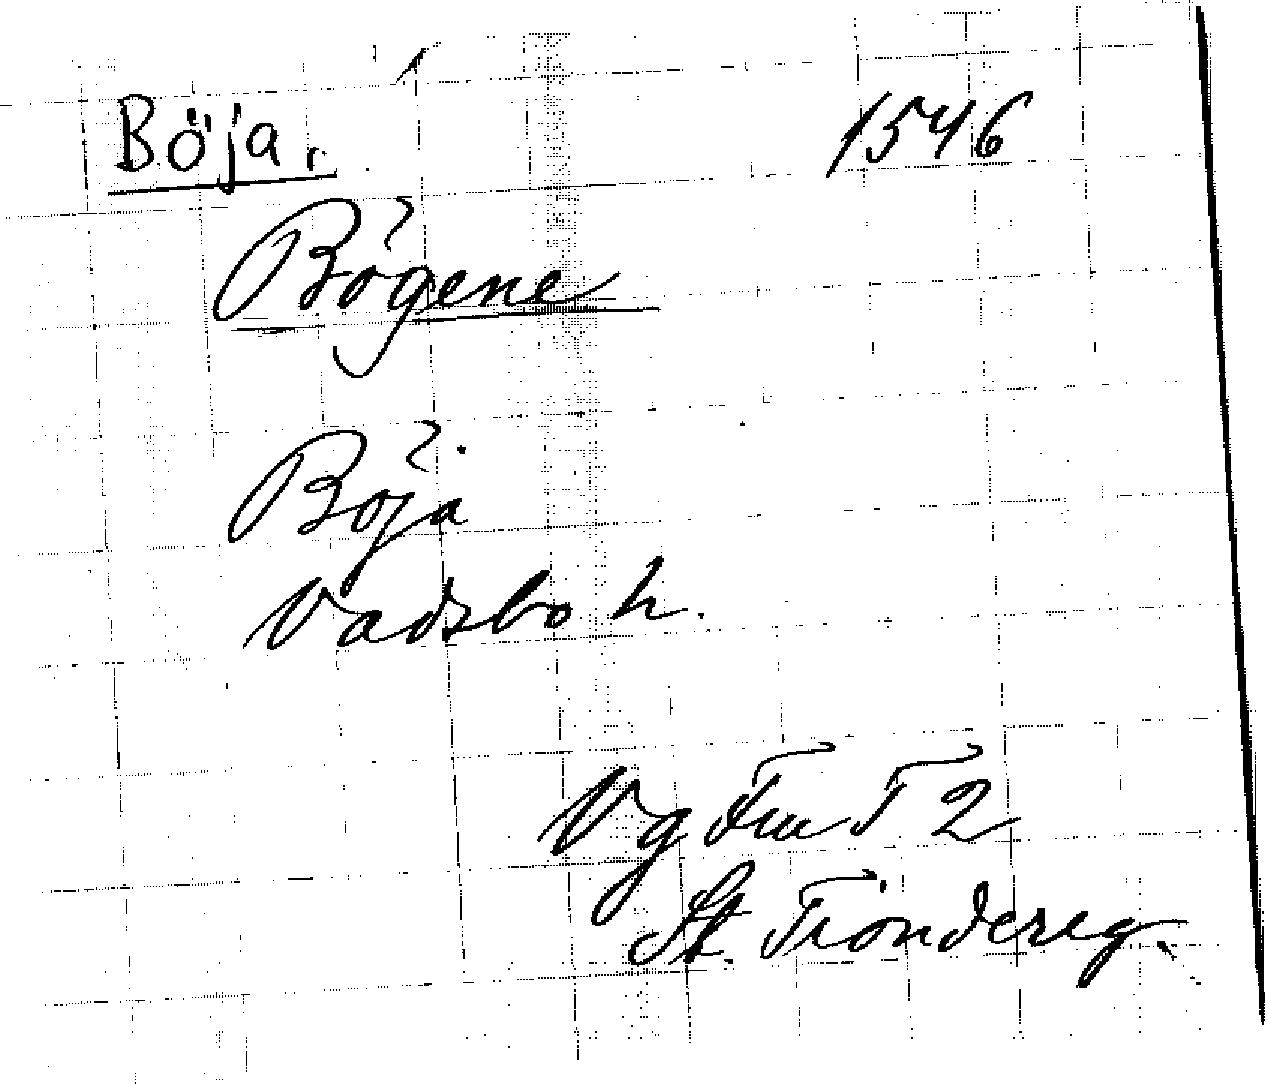 Böja. 1546
Bögene
Böja
Vadsbo h.
Vg Fru T 2
St. Tiondereg.